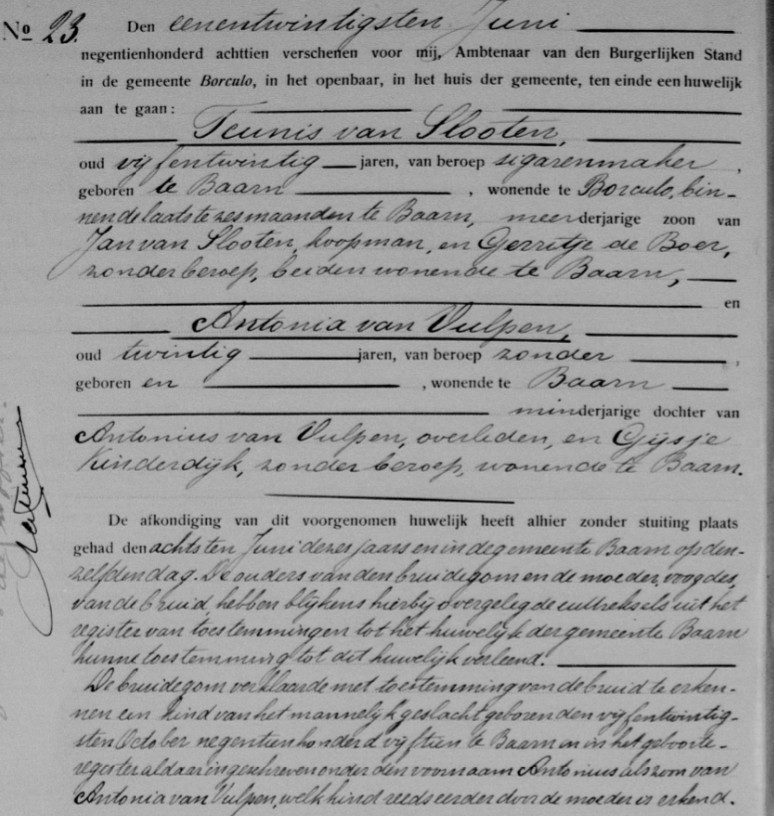 No 23. Den eenentwintigsten Juni
negentienhonderd achttien verschenen voor mij, Ambtenaar van den Burgerlijken Stand
in de gemeente Borculo, in het openbaar, in het huis der gemeente, ten einde een huwelijk
aan te gaan:
Teunis van Slooten,
oud vijfentwintig jaren, van beroep sigarenmaker,
geboren te Baarn, wonende te Borculo, bin-
nen de laatste zes maanden te Baarn, meerderjarige zoon van
Jan van Slooten, koopman, en Gerritje de Boer,
zonder beroep, beiden wonende te Baarn,
en
Antonia van Vulpen,
oud twintig jaren, van beroep zonder,
geboren en, wonende te Baarn
minderjarige dochter van
Antonius van Vulpen, overleden, en Gijsje
Kinderdijk, zonder beroep, wonende te Baarn.
De afkondiging van dit voorgenomen huwelijk heeft alhier zonder stuiting plaats
gehad den achtsten Juni dezes jaars en in de gemeente Baarn op den-
zelfden dag. De ouders van den bruidegom en de moeder, voogdes,
van de bruid, hebben blijkens hierbij overgelegde uittreksels uit het
register van toestemmingen tot het huwelijk der gemeente Baarn
hunne toestemming tot dit huwelijk verleend.
De bruidegom verklaarde met toestemming van de bruid te erken-
nen een kind van het mannelijk geslacht geboren den vijfentwintig-
sten October negentienhonderd vijftien te Baarn en in het geboorte-
register aldaar ingeschreven onder den voornaam Antonius als zoon van
Antonia van Vulpen, welk kind reeds eerder door de moeder is erkend.